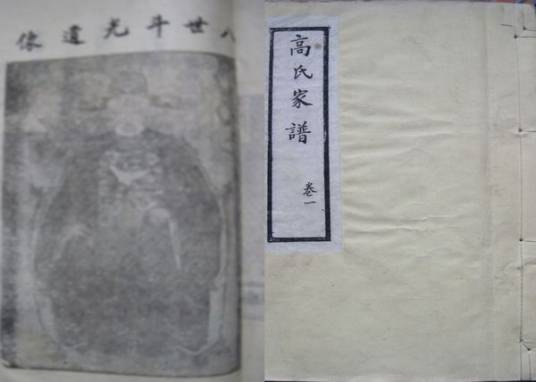 八世斗光遺像
高氏家譜
卷一